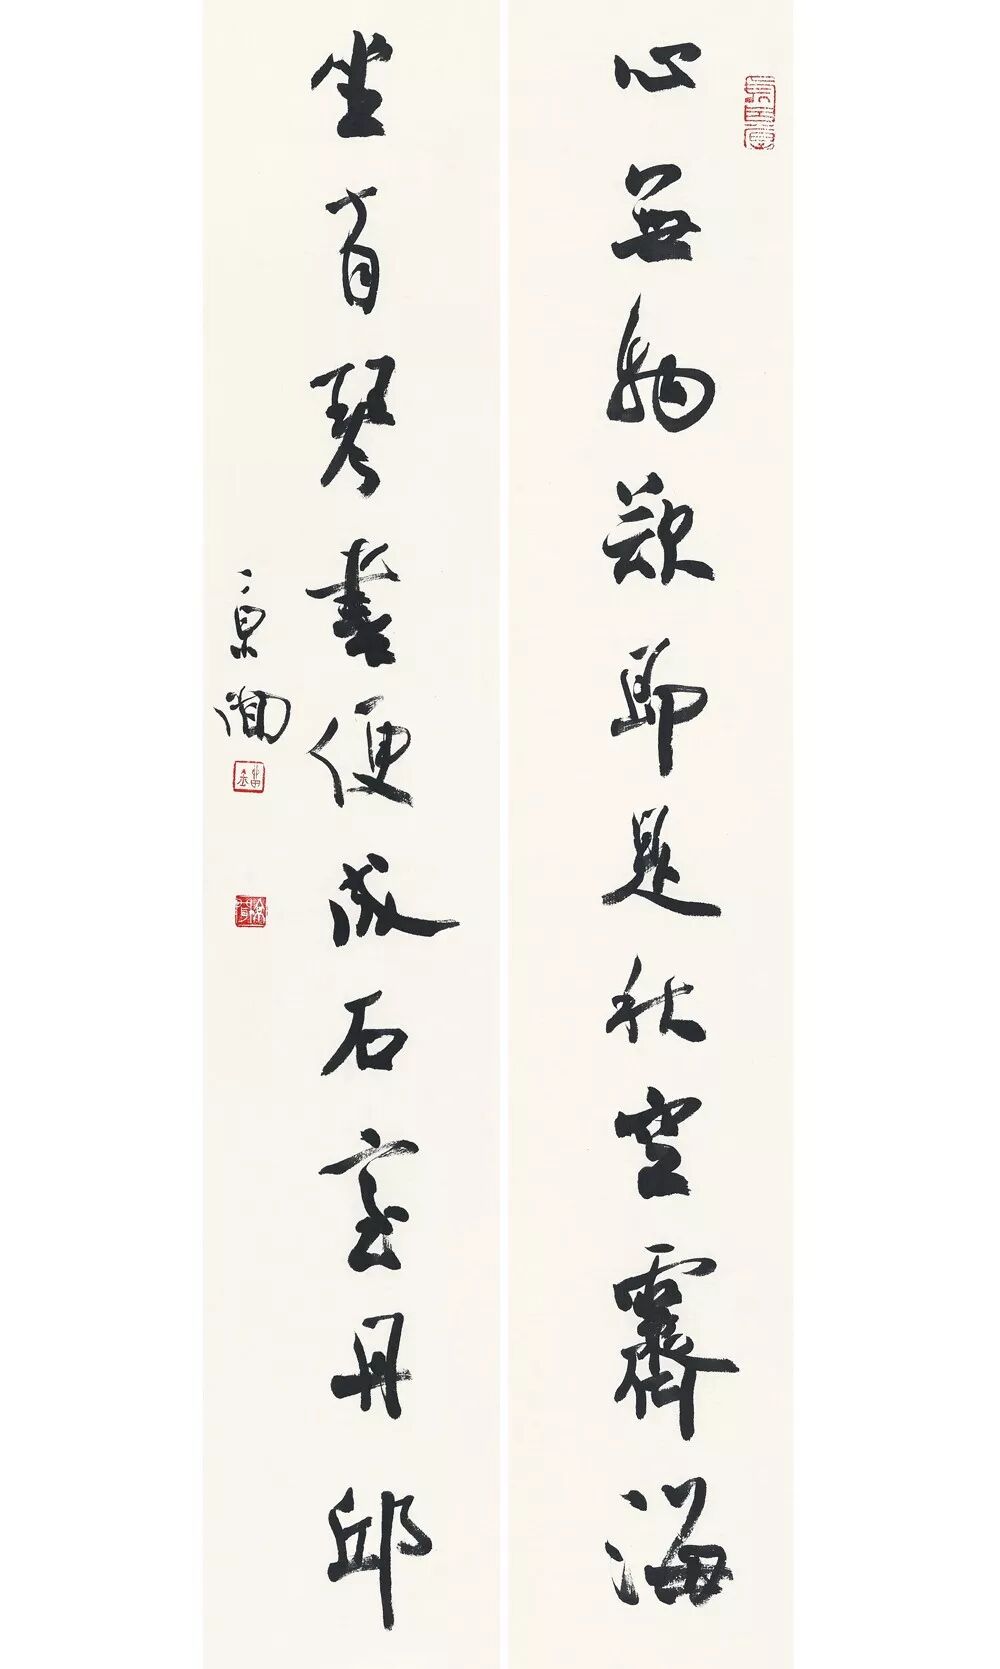 心無物欲即是秋空霽海
坐有琴書便成石室丹邱